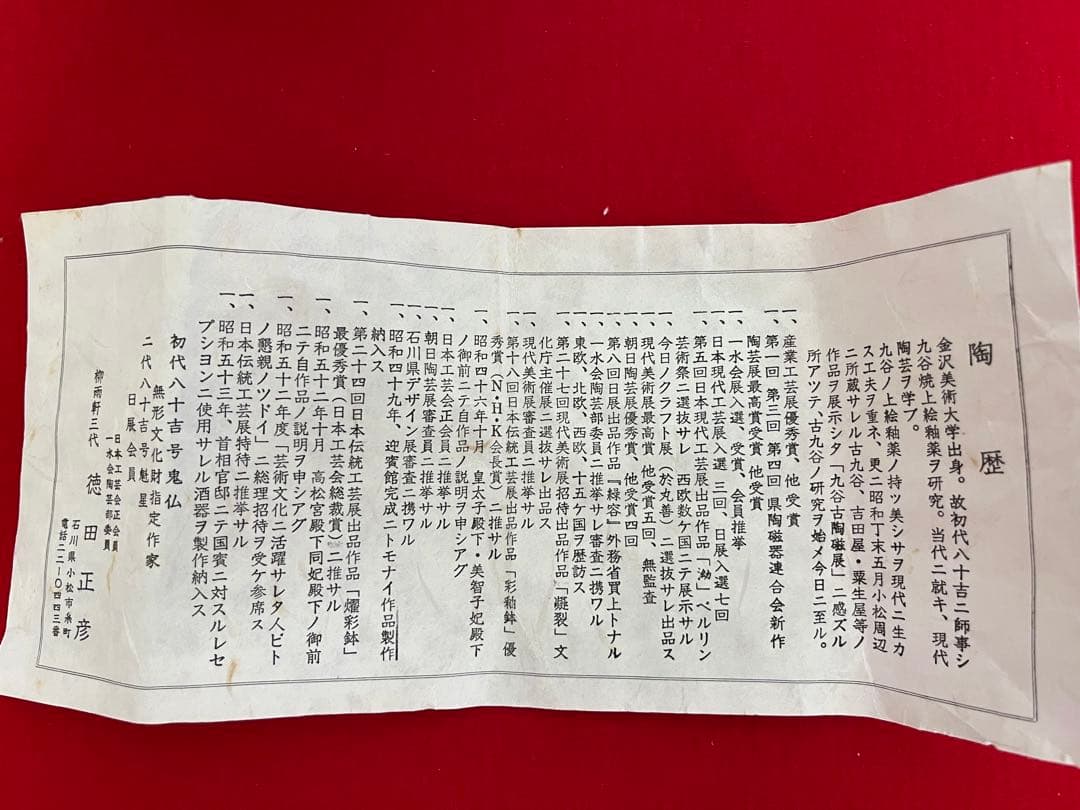 陶歴
金沢美術大学出身。故初代八十吉ニ師事シ
九谷焼上絵釉薬ヲ研究。当代ニ就キ、現代
陶芸ヲ学ブ。
九谷ノ上絵釉薬ノ持ツ美シサヲ現代ニ生カ
ス工夫ヲ重ネ、更ニ昭和丁末五月小松周辺
ニ所蔵サレル古九谷、吉田屋・粟生屋等ノ
作品ヲ展示シタ「九谷古陶磁展」ニ感ズル
所アツテ、古九谷ノ研究ヲ始メ今日ニ至ル。
一、産業工芸展優秀賞、他受賞
一、第一回 第三回 第四回 県陶磁器連合会新作
陶芸展最高賞受賞 他受賞
一、一水会展入選、受賞、会員推挙
一、日本現代工芸展入選 三回、日展入選七回
一、第五回日本現代工芸展出品作品「泑」ベルリン
芸術祭ニ選抜サレ 西欧数ケ国ニテ展示サル
一、今日ノクラフト展（於丸善）ニ選抜サレ出品ス
一、現代美術展最高賞 他受賞五回、無監査
一、朝日陶芸展優秀賞、他受賞四回
一、第八回日展出品作品『緑容』外務省買上トナル
一、一水会陶芸部委員ニ推挙サレ審査ニ携ワル
一、東欧、北欧、西欧、十五ケ国ヲ歴訪ス
一、第二十七回現代美術展招待出品作品「凝裂」文
化庁主催展ニ選抜サレ出品ス
一、現代美術展審査員ニ推挙サル
一、第十八回日本伝統工芸展出品作品「彩釉鉢」優
秀賞（N・H・K会長賞）ニ推サル
一、昭和四十六年十月 皇太子殿下・美智子妃殿下
ノ御前ニテ自作品ノ説明ヲ申シアグ
一、日本工芸会正会員ニ推挙サル
一、朝日陶芸展審査員ニ推挙サル
一、石川県デザイン展審査ニ携ワル
一、昭和四十九年、迎賓館完成ニトモナイ作品製作
納入ス
一、第二十四回日本伝統工芸展出品作品「燿彩鉢」
最優秀賞（日本工芸会総裁賞）ニ推サル
一、昭和五十二年十月 高松宮殿下同妃殿下ノ御前
ニテ自作品ノ説明ヲ申シアグ
一、昭和五十二年度「芸術文化ニ活躍サレタ人ビト
ノ懇親ノツドイ」ニ総理招待ヲ受ケ参席ス
一、日本伝統工芸展特待ニ推挙サル
一、昭和五十三年、首相官邸ニテ国賓ニ対スルレセ
プシヨンニ使用サレル酒器ヲ製作納入ス
初代八十吉号鬼仏
無形文化財指定作家
二代八十吉号魁星
日展会員
日本工芸会正会員
一水会陶芸部委員
柳雨軒三代 徳田正彦
石川県小松市糸町
電話二二-〇四四三番